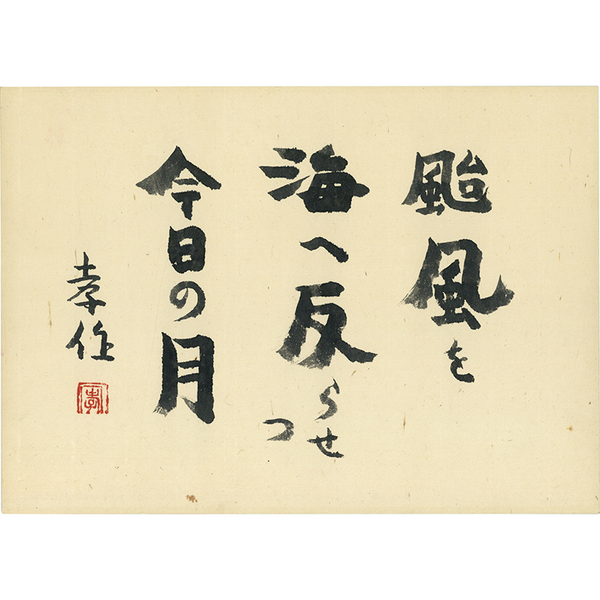 颱風を
海へ反らせつ
今日の月
孝作